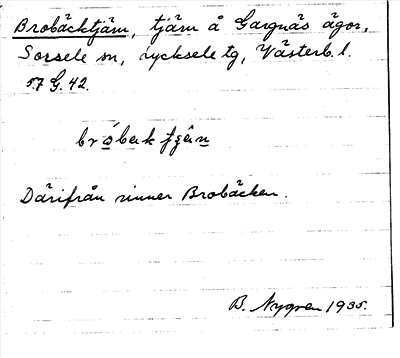 Brobäcktjärn, tjärn å Gargnäs ägor,
Sorsele sn, Lycksele tg, Västerb. l.
57 G. 42.
Därifrån rinner Brobäcken.
B. Nygren 1935.